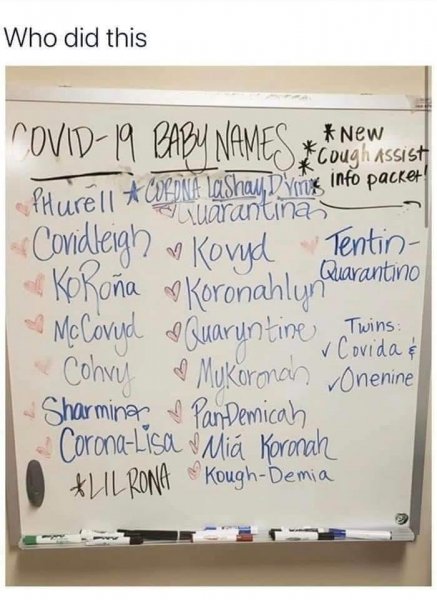 Who did this
COVID-19 BABY NAMES
* New
* Cough Assist
* info packet!
PHurell
* CORONA LaShay D'Virus
Quarantina
Covidleigh
Kovyd
Tentin-
Quarantino
KoRoña
Koronahlyn
McCovyd
Quaryntine
Twins:
✓ Covida &
✓ Onenine
Cohvy
MyKoronah
Sharminar
PanDemicah
Corona-Lisa
Miá Koronah
*LIL RONA
Kough-Demia